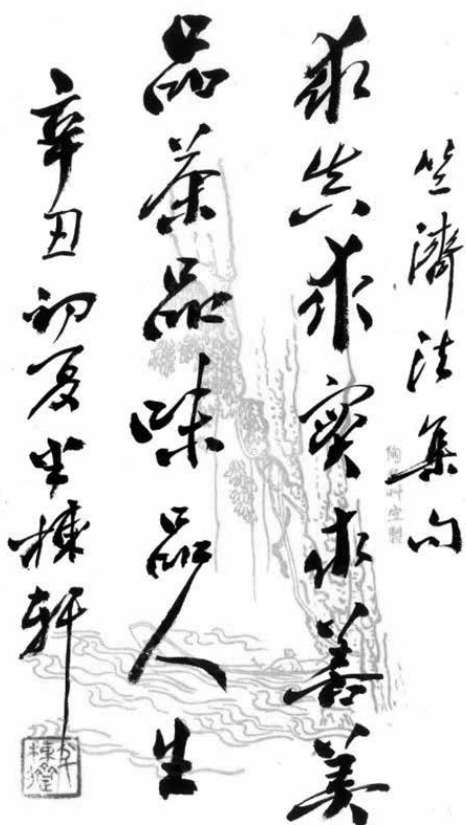 竺濟法集句
求真求實求善美
品茶品味品人生
辛丑初夏半楝軒